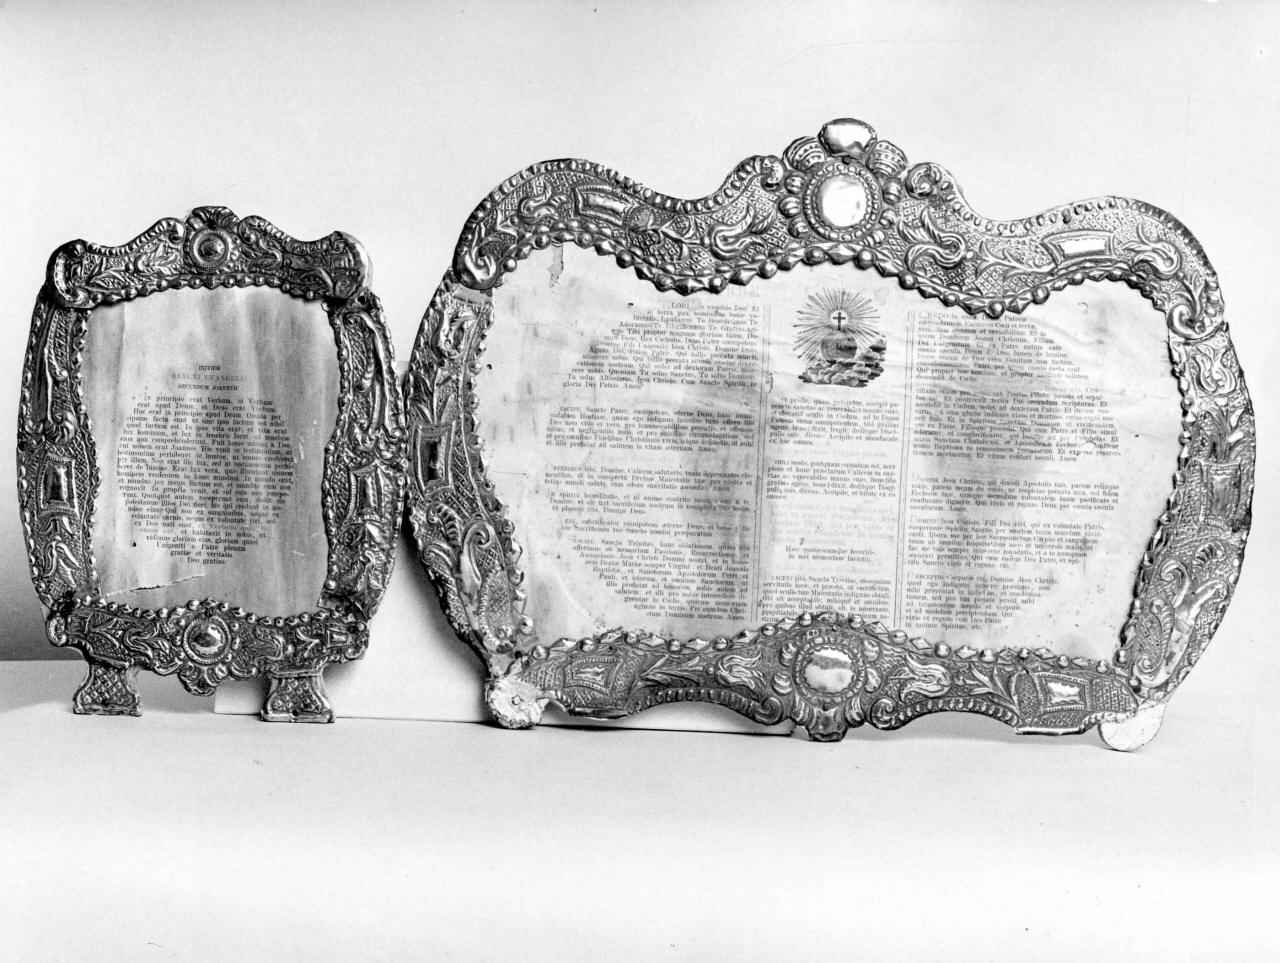 INITIUM
SANCTI EVANGELII
SECUNDUM JOANNEM
IN principio erat Verbum, et Verbum
erat apud Deum, et Deus erat Verbum.
Hoc erat in principio apud Deum. Omnia per
ipsum facta sunt et sine ipso factum est nihil
quod factum est. In ipso vita erat, et vita erat
lux hominum, et lux in tenebris lucet, et tenebræ
eam non comprehenderunt. Fuit homo missus a Deo,
cui nomen erat Joannes. Hic venit in testimonium, ut
testimonium perhiberet de lumine, ut omnes crederent
per illum. Non erat ille lux, sed ut testimonium perhi-
beret de lumine. Erat lux vera, quæ illuminat omnem
hominem venientem in hunc mundum. In mundo erat,
et mundus per ipsum factus est, et mundus eum non
cognovit. In propria venit, et sui eum non rece-
perunt. Quotquot autem receperunt eum, dedit eis
potestatem filios Dei fieri, his qui credunt in no-
mine ejus: Qui non ex sanguinibus, neque ex
voluntate carnis, neque ex voluntate viri, sed
ex Deo nati sunt.
et habitavit in nobis, et
vidimus gloriam ejus, gloriam quasi
Unigeniti a Patre plenum
gratiæ et veritatis.
Deo gratias.
LORIA in excelsis Deo. Et
in terra pax hominibus bonæ vo-
luntatis. Laudamus Te. Benedicimus Te.
Adoramus Te. Glorificamus Te. Gratias agi-
mus Tibi propter magnam gloriam tuam. Do-
mine Deus, Rex Cœlestis, Deus Pater omnipotens.
Domine Fili Unigenite Jesu Christe. Domine Deus,
Agnus Dei, Filius Patris. Qui tollis peccata mundi,
miserere nobis. Qui tollis peccata mundi, suscipe
Qui sedes ad dexteram Patris, mise-
rere nobis. Quoniam Tu solus Sanctus, Tu solus Dominus,
Tu solus Altissimus, Jesu Christe. Cum Sancto Spiritu, in
gloria Dei Patris. Amen.
SUSCIPE, Sancte Pater, omnipotens, æterne Deus, hanc imma-
culatam Hostiam, quam ego indignus famulus tuus offero tibi
Deo meo vivo et vero, pro innumerabilibus peccatis, et offensio-
nibus, et negligentiis meis, et pro omnibus circumstantibus, sed
et pro omnibus Fidelibus Christianis vivis, atque defunctis, ut mihi
et illis proficiat ad salutem in vitam æternam. Amen.
OFFERIMUS tibi, Domine, Calicem salutaris, tuam deprecantes cle-
mentiam, ut in conspectu Divinæ Majestatis tuæ pro nostra et
totius mundi salute, cum odore suavitatis ascendat. Amen.
IN spiritu humilitatis, et in animo contrito suscipiamur a te,
Domine, et sic fiat sacrificium nostrum in conspectu tuo hodie,
ut placeat tibi, Domine Deus.
VENI, sanctificator omnipotens æterne Deus, et bene dic
hoc Sacrificium tuo Sancto nomini præparatum.
SUSCIPE, Sancta Trinitas, hanc oblationem, quam tibi
offerimus ob memoriam Passionis, Resurrectionis, et
Ascensionis Jesu Christi Domini nostri, et in hono-
rem Beatæ Mariæ semper Virginis et Beati Joannis
Baptistæ, et Sanctorum Apostolorum Petri, et
Pauli, et istorum, et omnium Sanctorum ut
illis proficiat ad honorem, nobis autem ad
salutem: et illi pro nobis intercedere di-
gnentur in Cœlis, quorum memoriam
agimus in terris. Per eumdem Chri-
stum Dominum nostrum. Amen.
Qui pridie, quam pateretur, accepit pa-
nem in sanctas ac venerabiles manus suas,
et elevatis oculis in Cœlum, ad te Deum
Patrem suum omnipotentem, tibi gratias
agens, benedixit, fregit, deditque disci-
pulis suis, dicens: Accipite et manducate
ex hoc omnes.
SIMILI modo, postquam cœnatum est, acci-
piens et hunc præclarum Calicem in san-
ctas ac venerabiles manus suas, item tibi
gratias agens, benedixit, deditque Disci-
pulis suis, dicens: Accipite, et bibite ex eo
omnes.
Hæc quotiescumque feceritis,
in mei memoriam facietis.
PLACEAT tibi, Sancta Trinitas, obsequium
servitutis meæ, et præsta, ut sacrificium,
quod oculis tuæ Majestatis indignus obtuli,
tibi sit acceptabile, mihique et omnibus,
pro quibus illud obtuli, sit, te miserante,
propitiabile.
CREDO in unum Deum, Patrem
omnipotentem, Factorem Cœli et terræ,
visibilium omnium et invisibilium. Et in
unum Dominum Jesum Christum, Filium
Dei Unigenitum. Et ex Patre natum ante
omnia sæcula. Deum de Deo, lumen de lumine,
Deum verum de Deo vero. Genitum non factum,
consubstantialem Patri, per quem omnia facta sunt.
Qui propter nos homines, et propter nostram salutem
descendit de Cœlis.
Cru-
cifixus etiam pro nobis sub Pontio Pilato passus et sepul-
tus est. Et resurrexit tertia die secundum Scripturas. Et
ascendit in Cœlum, sedet ad dexteram Patris. Et iterum ven-
turus est cum gloria judicare vivos et mortuos, cujus regni non
erit finis. Et in Spiritum Sanctum Dominum, et vivificantem,
qui ex Patre, Filioque procedit. Qui cum Patre et Filio simul
adoratur, et conglorificatur, qui locutus est per Prophetas. Et
unam Sanctam Catholicam, et Apostolicam Ecclesiam. Confiteor
unum Baptisma in remissionem peccatorum. Et expecto resurre-
ctionem mortuorum. Et vitam venturi sæculi. Amen.
DOMINE Jesu Christe, qui dixisti Apostolis tuis, pacem relinquo
vobis, pacem meam do vobis, ne respicias peccata mea, sed fidem
Ecclesiæ tuæ, eamque secundum voluntatem tuam pacificare et
coadunare digneris. Qui vivis et regnas Deus per omnia sæcula
sæculorum. Amen.
DOMINE Jesu Christe, Fili Dei vivi, qui ex voluntate Patris,
cooperante Spiritu Sancto, per mortem tuam mundum vivifi-
casti, libera me per hoc Sacrosanctum Corpus et sanguinem
tuum ab omnibus iniquitatibus meis et universis malis, et
fac me tuis semper inhærere mandatis, et a te nunquam
separari permittas. Qui cum eodem Deo Patre, et Spi-
ritu Sancto vivis et regnas, etc.
PERCEPTIO Corporis tui, Domine Jesu Christe,
quod ego indignus sumere præsumo, non
mihi proveniat in judicium, et condemna-
tionem, sed pro tua pietate prosit mihi
ad tutamentum mentis et corporis,
et ad medelam percipiendam. Qui
vivis et regnas cum Deo Patre
in unitate Spiritus, etc.